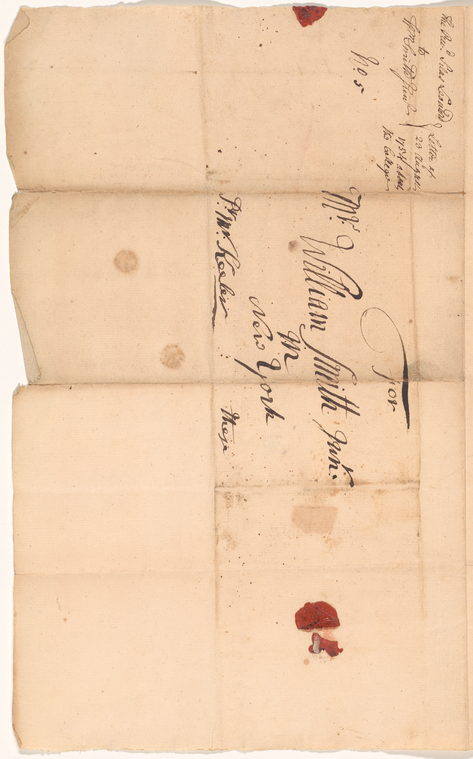 The Revd. Silas Leonard
to
Wm Smith Junr
Letter of
23 August
1754 about
the College
No 5
For
Mr. William Smith Junr.
In
New York
Pr Mr. Keeler
These